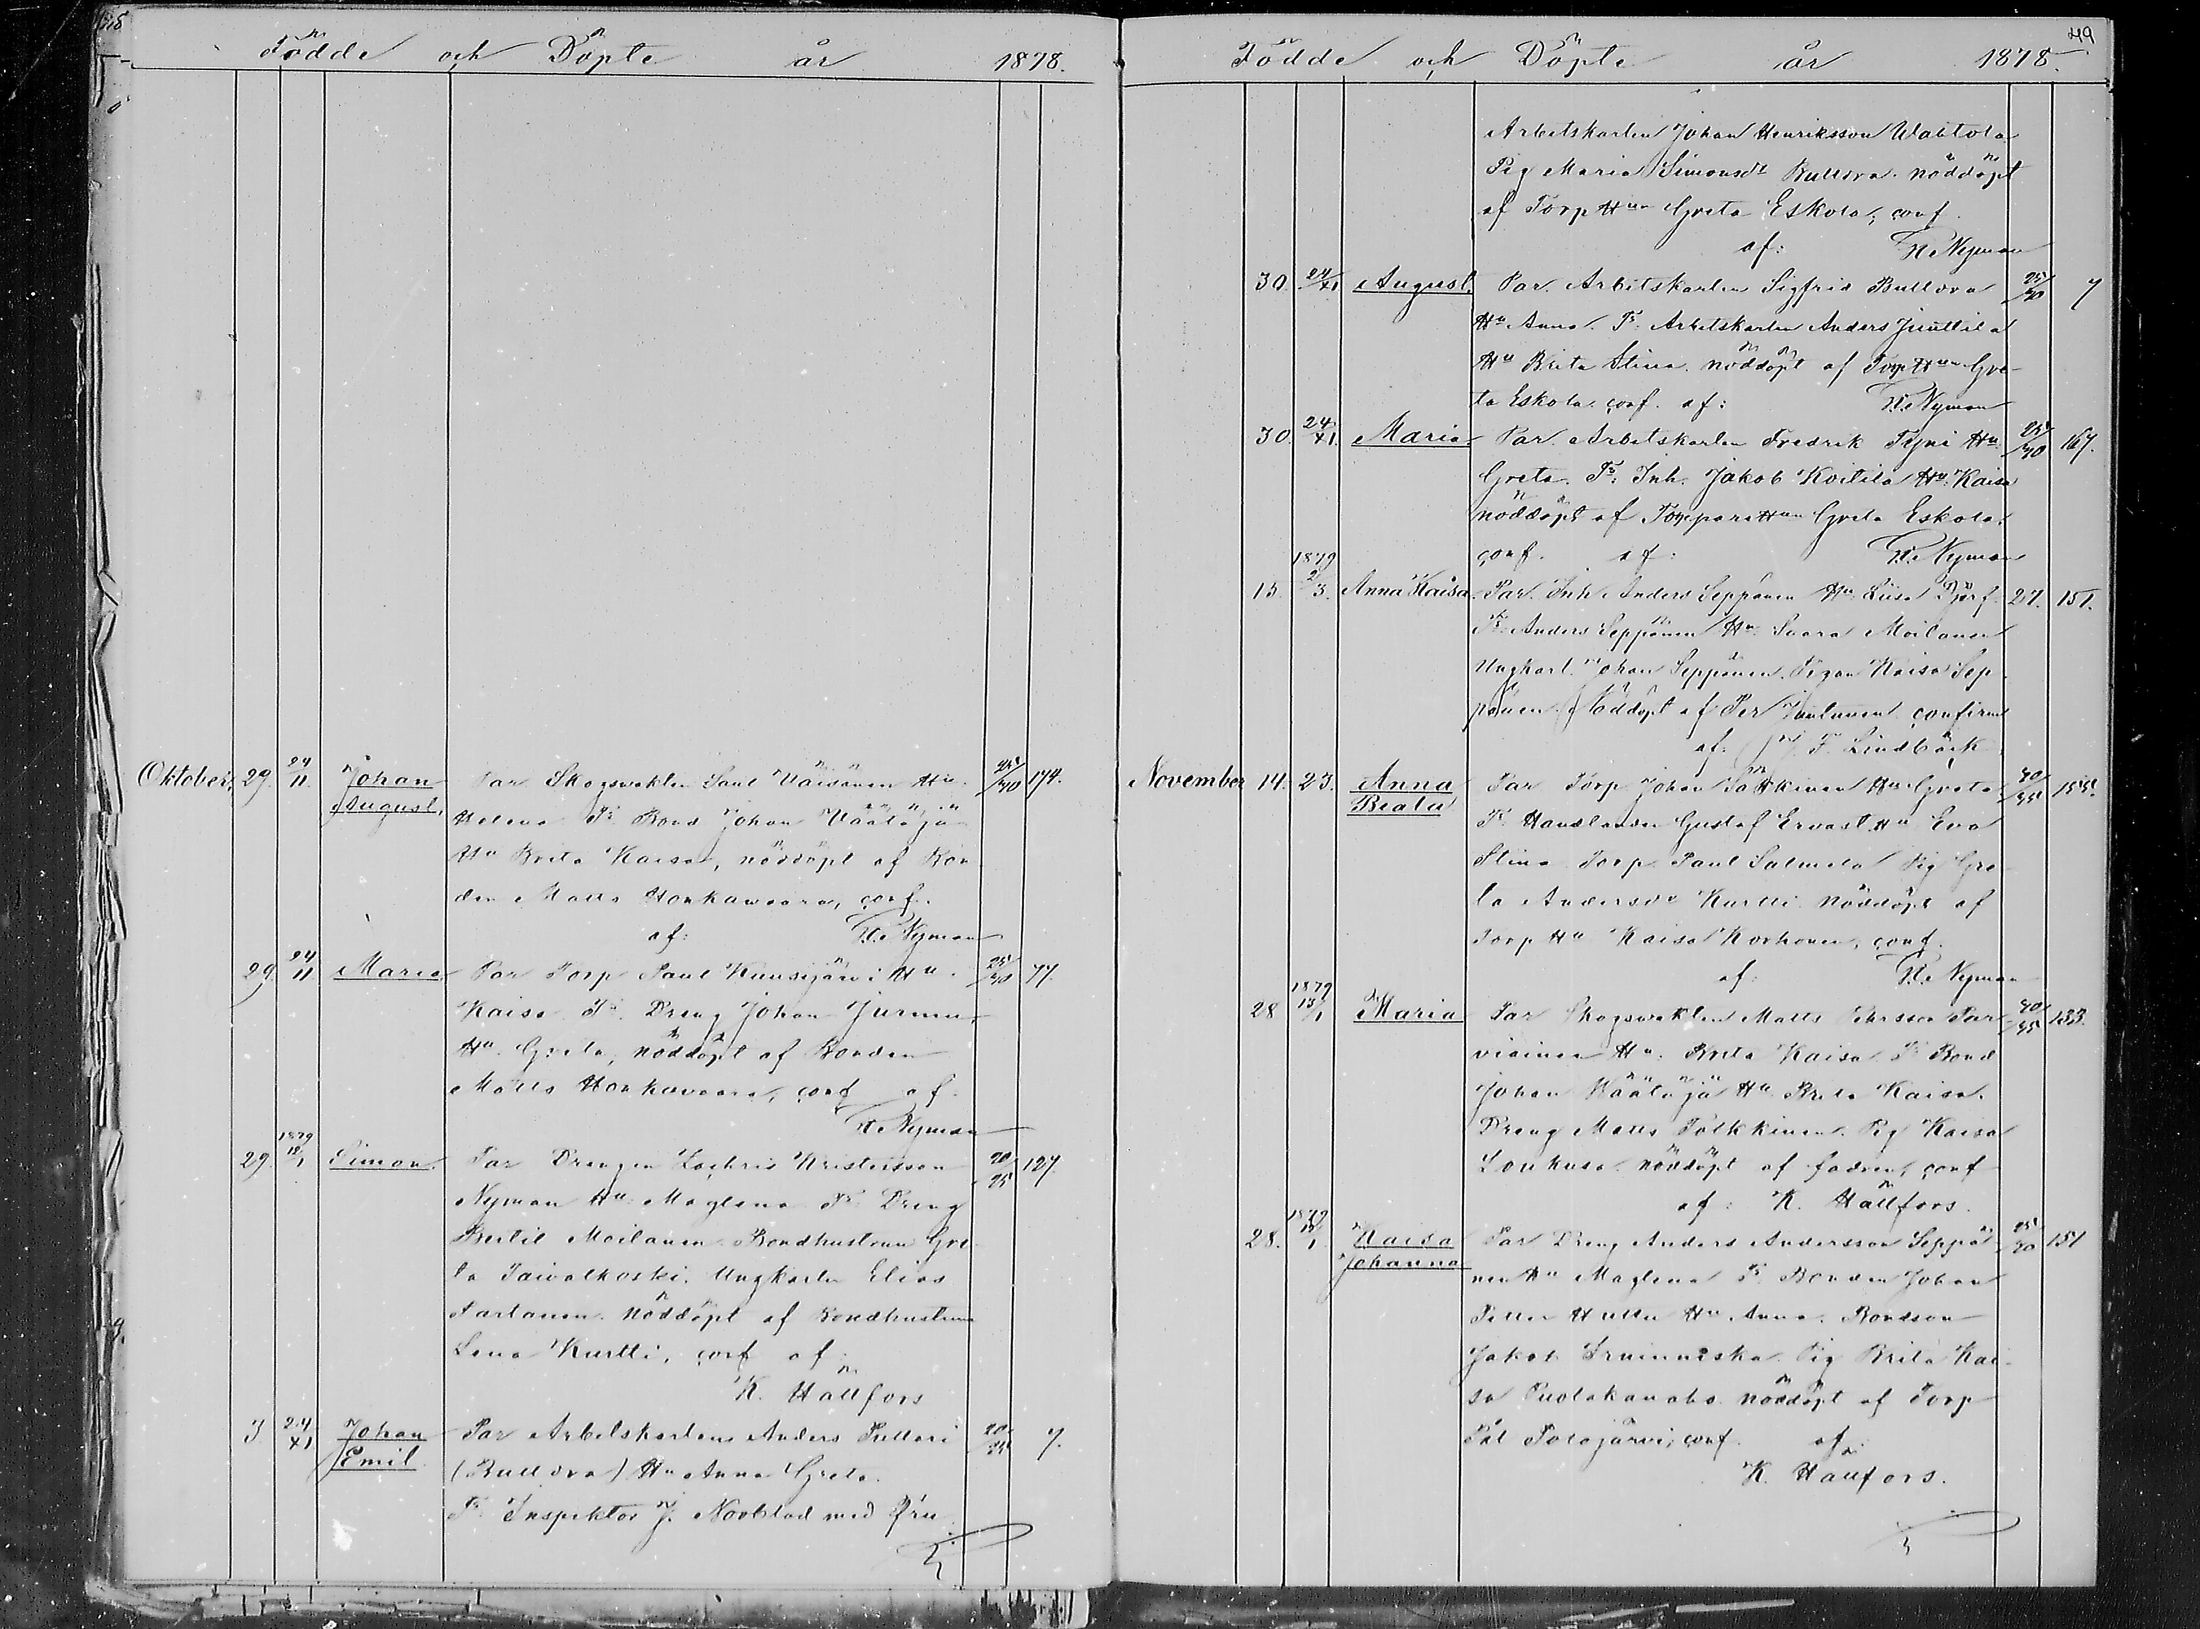 Födde och Döpte år 1878.
Oktober, 29. 24/11. Johan August. Par Skogswaktn Paul Väisänen Hu. 25/30 174.
Helena Fr. Bond Johan Väätäjä
Hu Brita Kaisa, nöddöpt af Bon
den Matts Honkawaara, conf.
af: F. H. Nyman
29. 24/11 Maria Par Torp Paul Kuusijärvi Hu. 77.
Kaisa Fr. Dreng Johan Jurmu
Hu. Greta, nöddöpt af Bonden
Matts Honkavaara, conf af.
Nyman
29. 1879 12/1 Simon. Par Drengen Zachris Kristersson 20/25 127.
Nyman Hu. Maglena Fr. Dreng
Bertil Moilanen Bondhustrun Gre
ta Taivalkoski. Ungkarln Elias
Parlanen. Nöddöpt af Bondhustrun
Lena Kurtti, conf af
K. Hällfors
24/XI Johan Emil. Par Arbetskarlens Anders 7.
(Bulldra) Hu Anna Greta.
Fr. Inspektor J. Nordblad med Fru
49
Födde och Döpte år 1878.
Arbetskarlen Johan Henriksson Wattola
Pig Maria Simonsdr Bulldra. nöddöpt
af Torp Hun Greta Eskola, conf.
af: Nyman
30 24/XI August. Par. Arbetskarlen Sigfrid Bulldra 7
Hu Anna. Fr. Arbetskarlen Anders Juuttila
Hu Brita Stina. nöddöpt af Torp Hun Gre-
ta Eskola. conf. af: Nyman
30. 24/XI. Maria Par. Arbetskarlen Fredrik Hu 167.
Greta. Fr. Inh. Jakob Koitila Hu. Kaisa
nöddöpt af Torpare Hun Greta Eskola.
conf. af: Nyman
15. 1879 2/3. Anna Kaisa. Par. Inh Anders Seppänen Hu. Liisa 27. 151.
Fr. Anders Seppänen Hu. Saara Moilanen
Ungkarl. Johan Seppänen. Pigan Kaisa Sep
pänen. Nöddöpt af Per Juntunen confirm
af: J. F. Lindbäck
November 14. 23. Anna Beata Par Torp Johan Särkinen Hu Greta 155.
Fr. Handlanden Gustaf Ervast Hu Eva
Stina Torp. Paul Salmela Pig Gre
ta Andersdr Kurtti nöddöpt af
Torp Hu Kaisa Korhonen, conf.
af: Nyman
28 1879 12/1 Maria Par Skogswaktln Matts Par 133.
viainen Hu. Brita Kaisa Fr Bond
Johan Wäätäjä Hu Brita Kaisa.
Dreng Matts Pölkkinen. Pig Kaisa
Loukusa. nöddöpt af fadren, conf
af: K. Hällfors.
28. 1879 12/1. Kaisa Johanna Par Dreng Anders Andersson Seppä 25/30 151
nen Hu Maglena Fr. Bonden Johan
Petter Huttu Hu Anna. Bondson
Jakob Irninniska. Pig Brita Kai-
sa Puolakanaho nöddöpt af Torp
Pål Polojärvi, conf. af.
K. Hällfors.